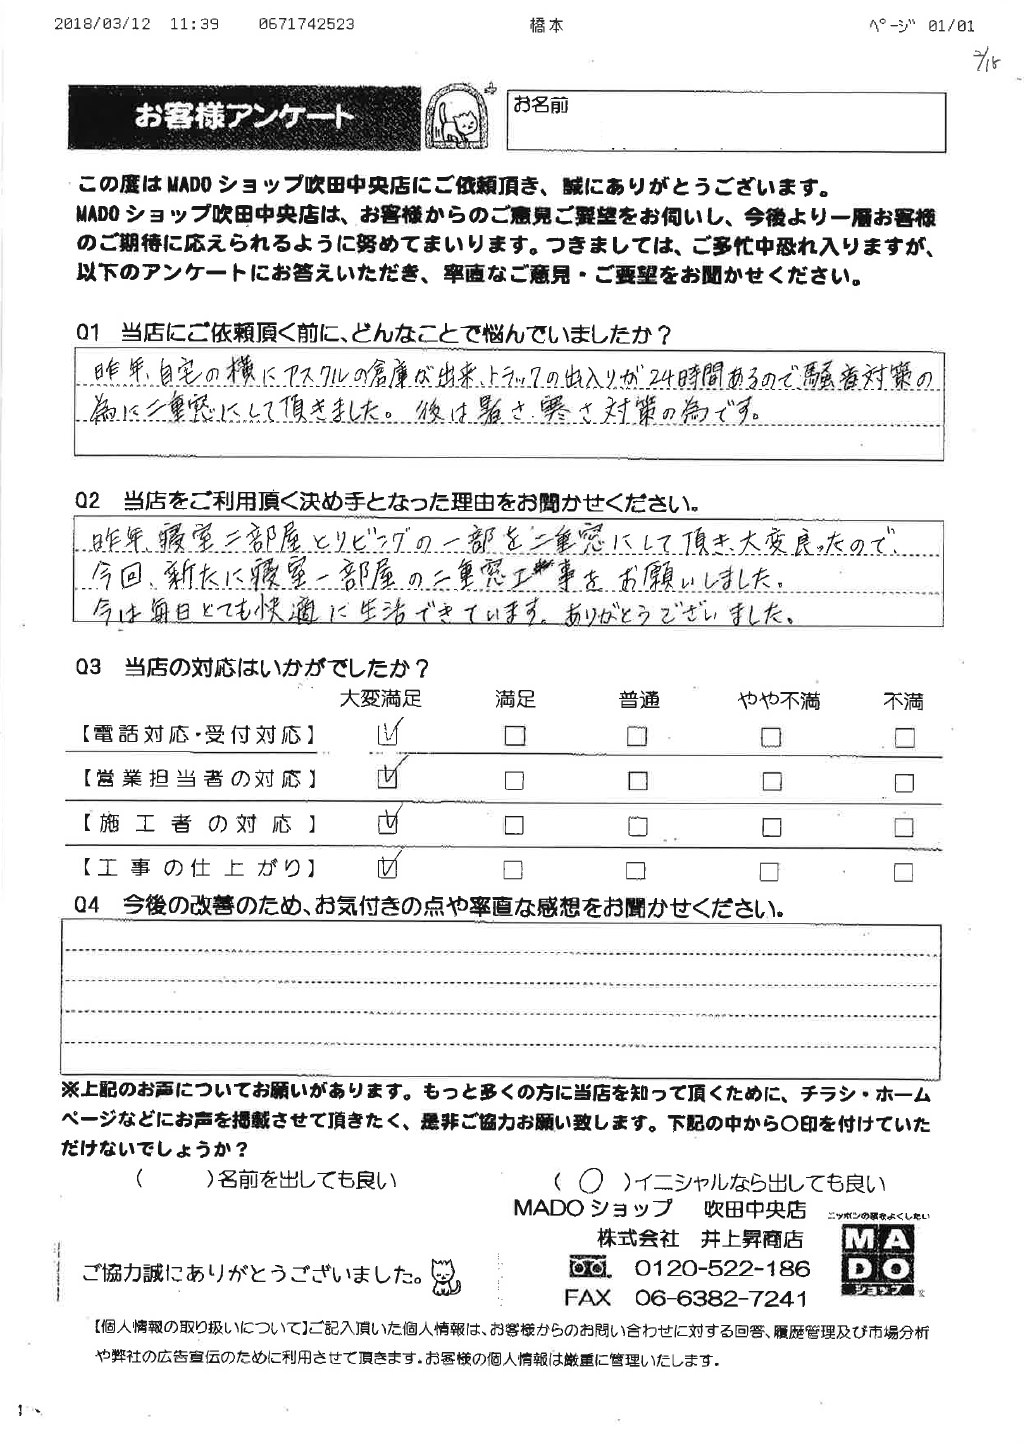 2018/03/12 11:39 0671742523 橋本 ﾍﾟｰｼﾞ 01/01
2/15
お客様アンケート
お名前
この度はMADOショップ吹田中央店にご依頼頂き、誠にありがとうございます。
MADOショップ吹田中央店は、お客様からのご意見ご要望をお伺いし、今後より一層お客様
のご期待に応えられるように努めてまいります。つきましては、ご多忙中恐れ入りますが、
以下のアンケートにお答えいただき、率直なご意見・ご要望をお聞かせください。
Q1 当店にご依頼頂く前に、どんなことで悩んでいましたか？
昨年、自宅の横にアスクルの倉庫が出来、トラックの出入りが24時間あるので、騒音対策の
為に二重窓にして頂きました。後は暑さ、寒さ対策の為です。
Q2 当店をご利用頂く決め手となった理由をお聞かせください。
昨年、寝室二部屋とリビングの一部を二重窓にして頂き、大変良ったので、
今回、新たに寝室一部屋の二重窓工事をお願いしました。
今は毎日とても快適に生活できています。ありがとうございました。
Q3 当店の対応はいかがでしたか？
大変満足 満足 普通 やや不満 不満
【電話対応・受付対応】
【営業担当者の対応】
【施工者の対応】
【工事の仕上がり】
Q4 今後の改善のため、お気付きの点や率直な感想をお聞かせください。
※上記のお声についてお願いがあります。もっと多くの方に当店を知って頂くために、チラシ・ホーム
ページなどにお声を掲載させて頂きたく、是非ご協力お願い致します。下記の中から〇印を付けていた
だけないでしょうか？
(　　)名前を出しても良い (○)イニシャルなら出しても良い
MADOショップ 吹田中央店
株式会社 井上昇商店
0120-522-186
FAX 06-6382-7241
ニッポンの窓をよくしたい
MADO
ショップ
ご協力誠にありがとうございました。
【個人情報の取り扱いについて】ご記入頂いた個人情報は、お客様からのお問い合わせに対する回答、履歴管理及び市場分析
や弊社の広告宣伝のために利用させて頂きます。お客様の個人情報は厳重に管理いたします。